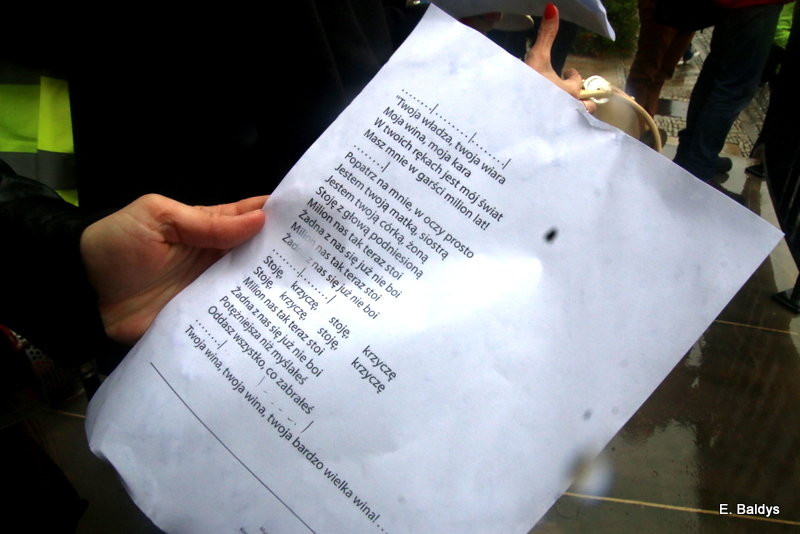 .......I.......I.......I
"Twoja władza, twoja wiara
Moja wina, moja kara
W twoich rękach jest mój świat
Masz mnie w garści milion lat!
.......I
Popatrz na mnie, w oczy prosto
Jestem twoją matką, siostrą
Jestem twoją córką, żoną
Stoję z głową podniesioną
Milion nas tak teraz stoi
Żadna z nas się już nie boi
Milion nas tak teraz stoi
Żadna z nas się już nie boi
.......I.......I
Stoję, krzyczę, stoję, krzyczę
Stoję, krzyczę, stoję, krzyczę
Milion nas tak teraz stoi
Żadna z nas się już nie boi
Potężniejsza niż myślałeś
Oddasz wszystko, co zabrałeś
.......I
Twoja wina, twoja wina, twoja bardzo wielka wina!...
E. Baldys